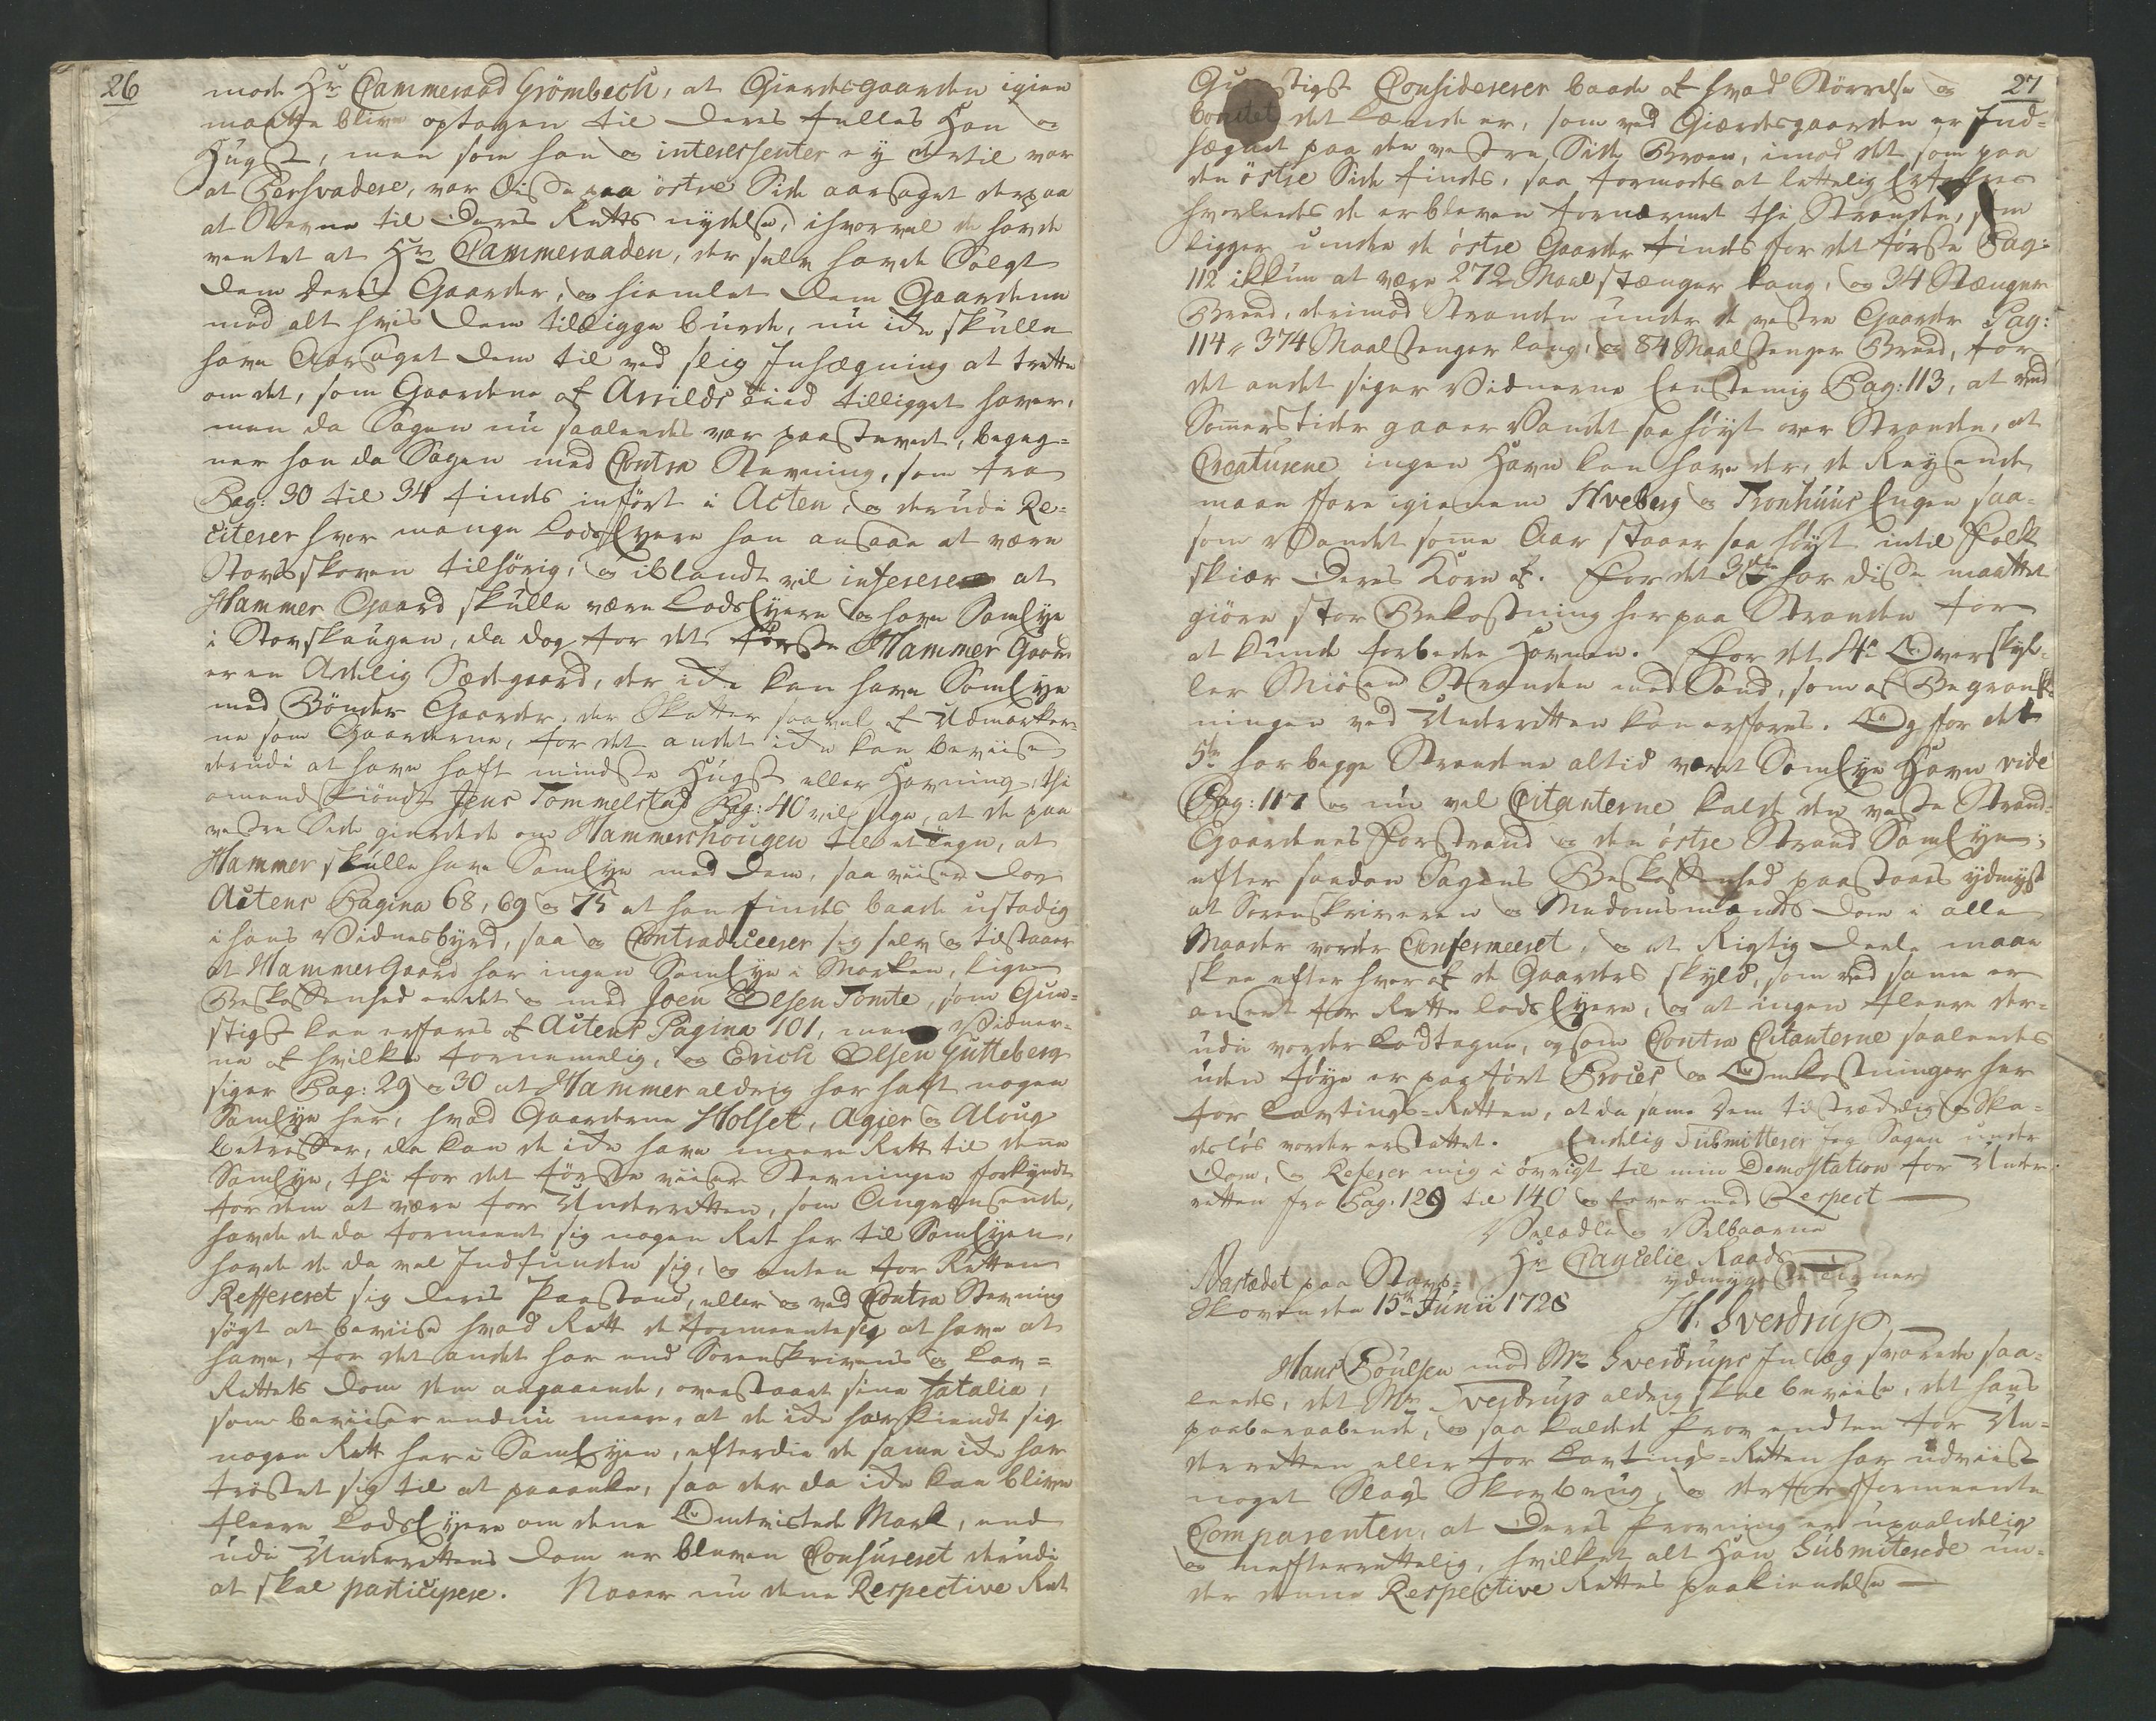 26
mode Hr Cammeraad Grömbech, at Gierdesgaarden igien
maatte blive optagen til deres fælles Haun og
Hugst, men som han og interessenter ey dertil var
at Persvadere, var disse paa östre Side aarsaget derpaa
at Stevne til deres Retts nydelse, ihvorvel de hafde
ventet at Hr Cammeraaden, der selv hafde Solgt
dem deres Gaarder, og hiemlet dem Gaardene
med alt hvis dem tilligge burde, nu icke skulle
have Aarsaget dem til ved slig Inhægning at trætte
om det, som Gaardene af Arrilds tiid tilligget haver,
men da Sagen nu saaleedes var paastevnet, begeg-
ner han da Sagen med Contra Stevning, som fra
Pag: 30 til 34 findes indfört i Acten, og derudi Re-
citerer hvor mange Lods Eyere han ansaae at være
Stavsskoven tilhörig, og iblandt vil inferere at
Hammer Gaard skulle være Lods Eyere og have SamEye
i Stovskaugen, da dog for det förste Hammer Gaard
er en Adelig Sædegaard, der icke kan have SamEye
med Bönder Gaarder, der Skatter saavel af Udmarker-
ne som Gaarderne, for det andet icke kan beviise
derudi at have haft mindste Hugst eller Havning, thi
omendskiöndt Jens Tommelstad Pag: 40 vil sige, at de paa
vestre Side gierdede om Hammershougen til et tegn, at
Hammer skulle have SamEye med dem, saa viiser dog
Actens Pagina 68, 69 og 75 at han findes baade ustadig
i hans Vidnesbyrd, saa og Contradicerer sig selv og tilstaaer
at Hammer Gaard har ingen SamEye i Marken, lige
Beskaffenhed er det og med Joen Olsen Tomte, som Gun-
stigst kan erfares af Actens Pagina 101, men Vidner-
ne af hvilke fornemmelig, og Erich Olsen Gutteberg
siger Pag: 29 og 30 at Hammer aldrig har haft nogen
SamEye her, hvad Gaarderne Holset, Agier og Aloug
betreffer, da kan de icke have meere Rett til denne
SamEye, thi for det förste viiser Stevningen forkyndt
for dem at være for Underretten, som Angrensende,
hafde de da formeent sig nogen Ret her til SamEyen,
hafde de da vel Indfunden sig, og enten for Retten
Reffereret sig deres Paastand, eller og ved Contra Stevning
sögt at beviise hvad Rett de formeente sig at have at
have, for det andet har end Sorenskrivens og Lav-
Rettets Dom dem angaaende, overstaaet sine fatalia,
som beviiser endnu meere, at de icke har kiendt sig
nogen Rett her i SamEyen, efterdi de samme icke har
tröstet sig til at paaanke, saa der da icke kan blive
fleere Lods Eyere om denne Omtvistede Mark, end
udi Underrettens Dom er bleven Censureret derudi
at skal participere. Naaer nu denne Respective Ret
27
Gunstigst Considererer baade af hvad Störrelse og
det Lænde er, som ved Giærdesgaarden er Ind-
hægnet paa den vestre Side Broen, imod det som paa
den östre Side findes, saa formodes at lettelig Erfahres
hvorledes de er bleven fornærmet thi Stranden, som
ligger under de östre Gaarder findes for det förste Pag:
112 ikkun at være 272 Maal stænger lang, og 34 Stænger
Breed, derimod Stranden under de vestre Gaarder Pag:
114 374 Maal stenger lang, og 84 Maal stenger Breed, for
det andet siger Vidnerne Eenstemig Pag: 113, at ved
Sommerstider gaaer Vandet saa höyt over Stranden, at
Creaturene ingen Havn kan have der, de Reysende
maae fare igiennem Hveberg og Tronhuus Engen saa-
som Vandet somme Aar staaer saa höyt intil Folk
skiær deres Korn af. For det 3die har disse maattet
giöre stor Bekostning her paa Stranden for
at kunde forbedre Havnen. For det 4de Overskyl-
ler Miösen Stranden med Sand, som af Begransk-
ningen ved Underretten kan erfares. Og for det
5te har begge Strandene altid været SamEye Havn vide
Pag: 117 og nu vil Citanterne kalde den vestre Strand
Gaardenes Forstrand og den östre Strand SamEye;
efter saadan Sagens Beskaffenhed paastaaes ydmygst
at Sorenskriveren og Meddomsmænds Dom i alle
Maader vorder Confermeeret, og at Rigtig Deele maae
skee efter hver af de Gaarders skyld, som ved samme er
anseet for Rette lods Eyere, og at ingen fleere der-
udi vorder Lodtagne, og som Contra Citanterne saaleedes
uden föye er paafört Proces og Omkostninger her
for Lavtings-Retten, at da samme dem tilstrækkelig og Ska-
deslös vorder erstattet. Endelig Submitterer jeg Sagen under
Dom, og Referer mig i övrigt til min Demostation for Under
retten fra Pag. 129 til 140 og lever med Respect
Velædle og Velbaarne
Hr Cancelie Raads
ydmygste Tiener
H. Sverdrup
Nastædet paa Stavs-
Skoven den 15de Junii 1728
Hans Poulsen mod Mr Sverdrups Inlæg svarede saa-
leedes, det Mr Sverdrup aldrig skal beviise, det hans
paaberaabende, og saa kaldede Prov endten for Un-
derretten eller for Lavtings-Retten har udviist
noget Slags Skovbrug, og derfor formeente
Comparenten, at deres Provning er upaalidelig
og uefterrettelig, hvilket alt Han Submiterede un-
der denne Respective Rettes paakiendelse